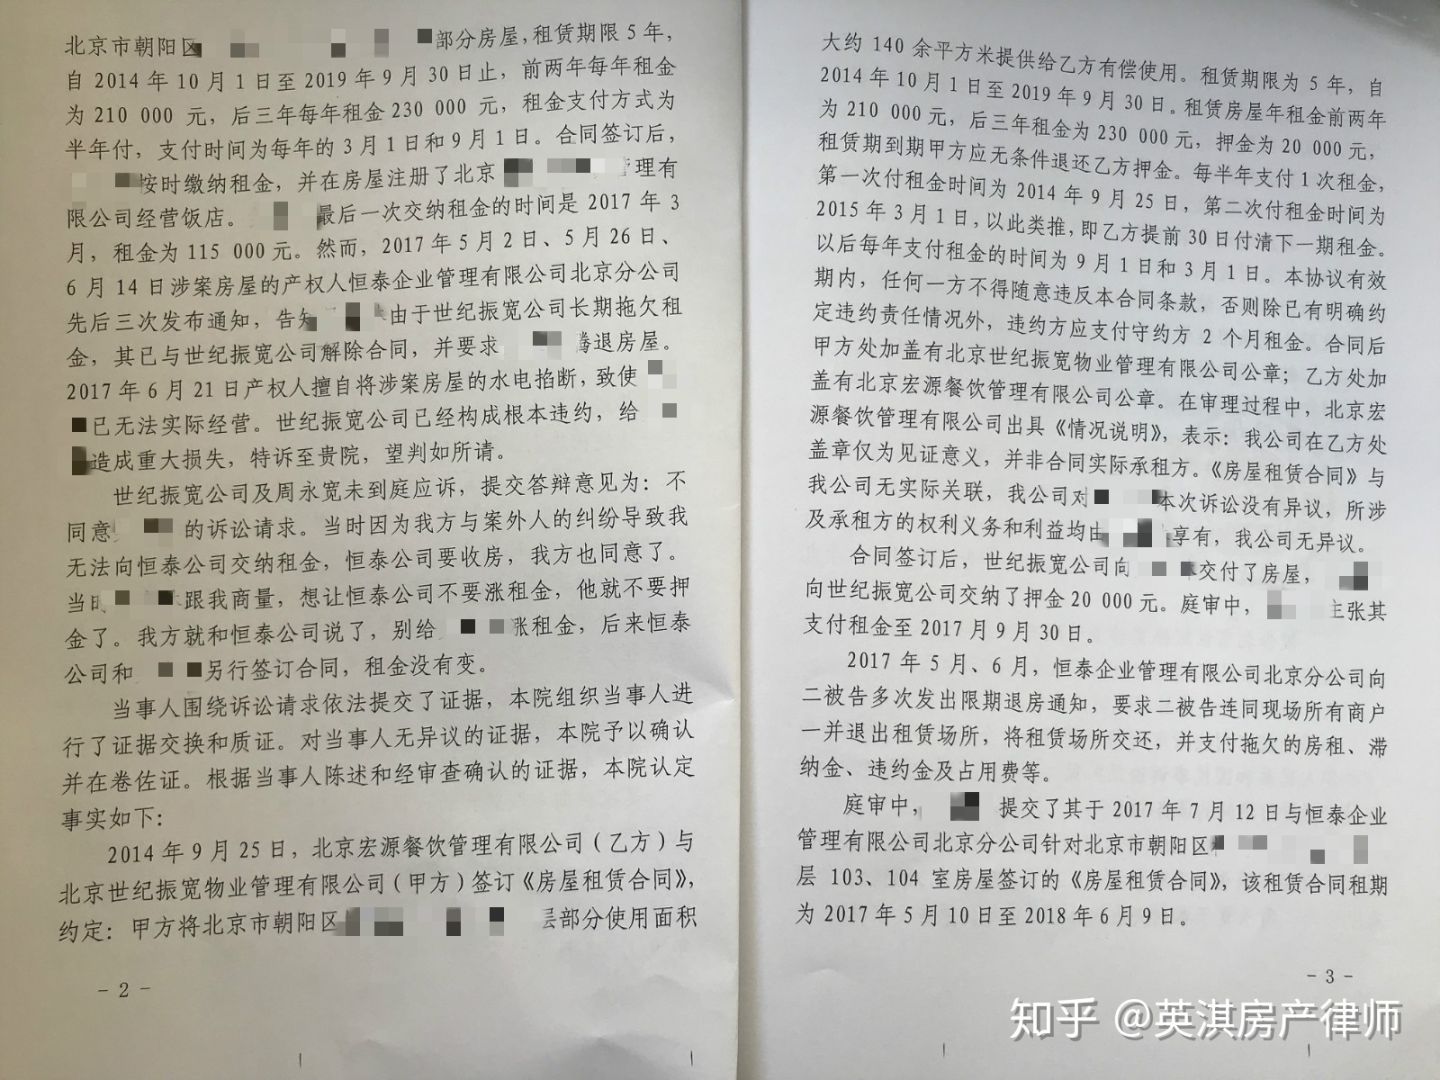 北京市朝阳区部分房屋,租赁期限5年,
自2014年10月1日至2019年9月30日止，前两年每年租金
为210 000元，后三年每年租金230 000元，租金支付方式为
半年付，支付时间为每年的3月1日和9月1日。合同签订后，
按时缴纳租金，并在房屋注册了北京管理有
限公司经营饭店。最后一次交纳租金的时间是2017年3
月，租金为115 000元。然而，2017年5月2日、5月26日、
6月14日涉案房屋的产权人恒泰企业管理有限公司北京分公司
先后三次发布通知，告知由于世纪振宽公司长期拖欠租
金，其已与世纪振宽公司解除合同，并要求腾退房屋。
2017年6月21日产权人擅自将涉案房屋的水电掐断，致使
已无法实际经营。世纪振宽公司已经构成根本违约，给
造成重大损失，特诉至贵院，望判如所请。
世纪振宽公司及周永宽未到庭应诉，提交答辩意见为：不
同意的诉讼请求。当时因为我方与案外人的纠纷导致我
无法向恒泰公司交纳租金，恒泰公司要收房，我方也同意了。
当时跟我商量，想让恒泰公司不要涨租金，他就不要押
金了。我方就和恒泰公司说了，别给涨租金，后来恒泰
公司和另行签订合同，租金没有变。
当事人围绕诉讼请求依法提交了证据，本院组织当事人进
行了证据交换和质证。对当事人无异议的证据，本院予以确认
并在卷佐证。根据当事人陈述和经审查确认的证据，本院认定
事实如下：
2014年9月25日，北京宏源餐饮管理有限公司（乙方）与
北京世纪振宽物业管理有限公司（甲方）签订《房屋租赁合同》，
约定：甲方将北京市朝阳区层部分使用面积
- 2 -
大约140余平方米提供给乙方有偿使用。租赁期限为5年，自
2014年10月1日至2019年9月30日。租赁房屋年租金前两年
为210 000元，后三年租金为230 000元，押金为20 000元，
租赁期到期甲方应无条件退还乙方押金。每半年支付1次租金，
第一次付租金时间为2014年9月25日，第二次付租金时间为
2015年3月1日，以此类推，即乙方提前30日付清下一期租金。
以后每年支付租金的时间为9月1日和3月1日。本协议有效
期内，任何一方不得随意违反本合同条款，否则除已有明确约
定违约责任情况外，违约方应支付守约方2个月租金。合同后
甲方处加盖有北京世纪振宽物业管理有限公司公章；乙方处加
盖有北京宏源餐饮管理有限公司公章。在审理过程中，北京宏
源餐饮管理有限公司出具《情况说明》，表示：我公司在乙方处
盖章仅为见证意义，并非合同实际承租方。《房屋租赁合同》与
我公司无实际关联，我公司对本次诉讼没有异议，所涉
及承租方的权利义务和利益均由享有，我公司无异议。
合同签订后，世纪振宽公司向交付了房屋，
向世纪振宽公司交纳了押金20 000元。庭审中，主张其
支付租金至2017年9月30日。
2017年5月、6月，恒泰企业管理有限公司北京分公司向
二被告多次发出限期退房通知，要求二被告连同现场所有商户
一并退出租赁场所，将租赁场所交还，并支付拖欠的房租、滞
纳金、违约金及占用费等。
庭审中，提交了其于2017年7月12日与恒泰企业
管理有限公司北京分公司针对北京市朝阳区
层103、104室房屋签订的《房屋租赁合同》，该租赁合同租期
为2017年5月10日至2018年6月9日。
- 3 -
知乎 @英淇房产律师